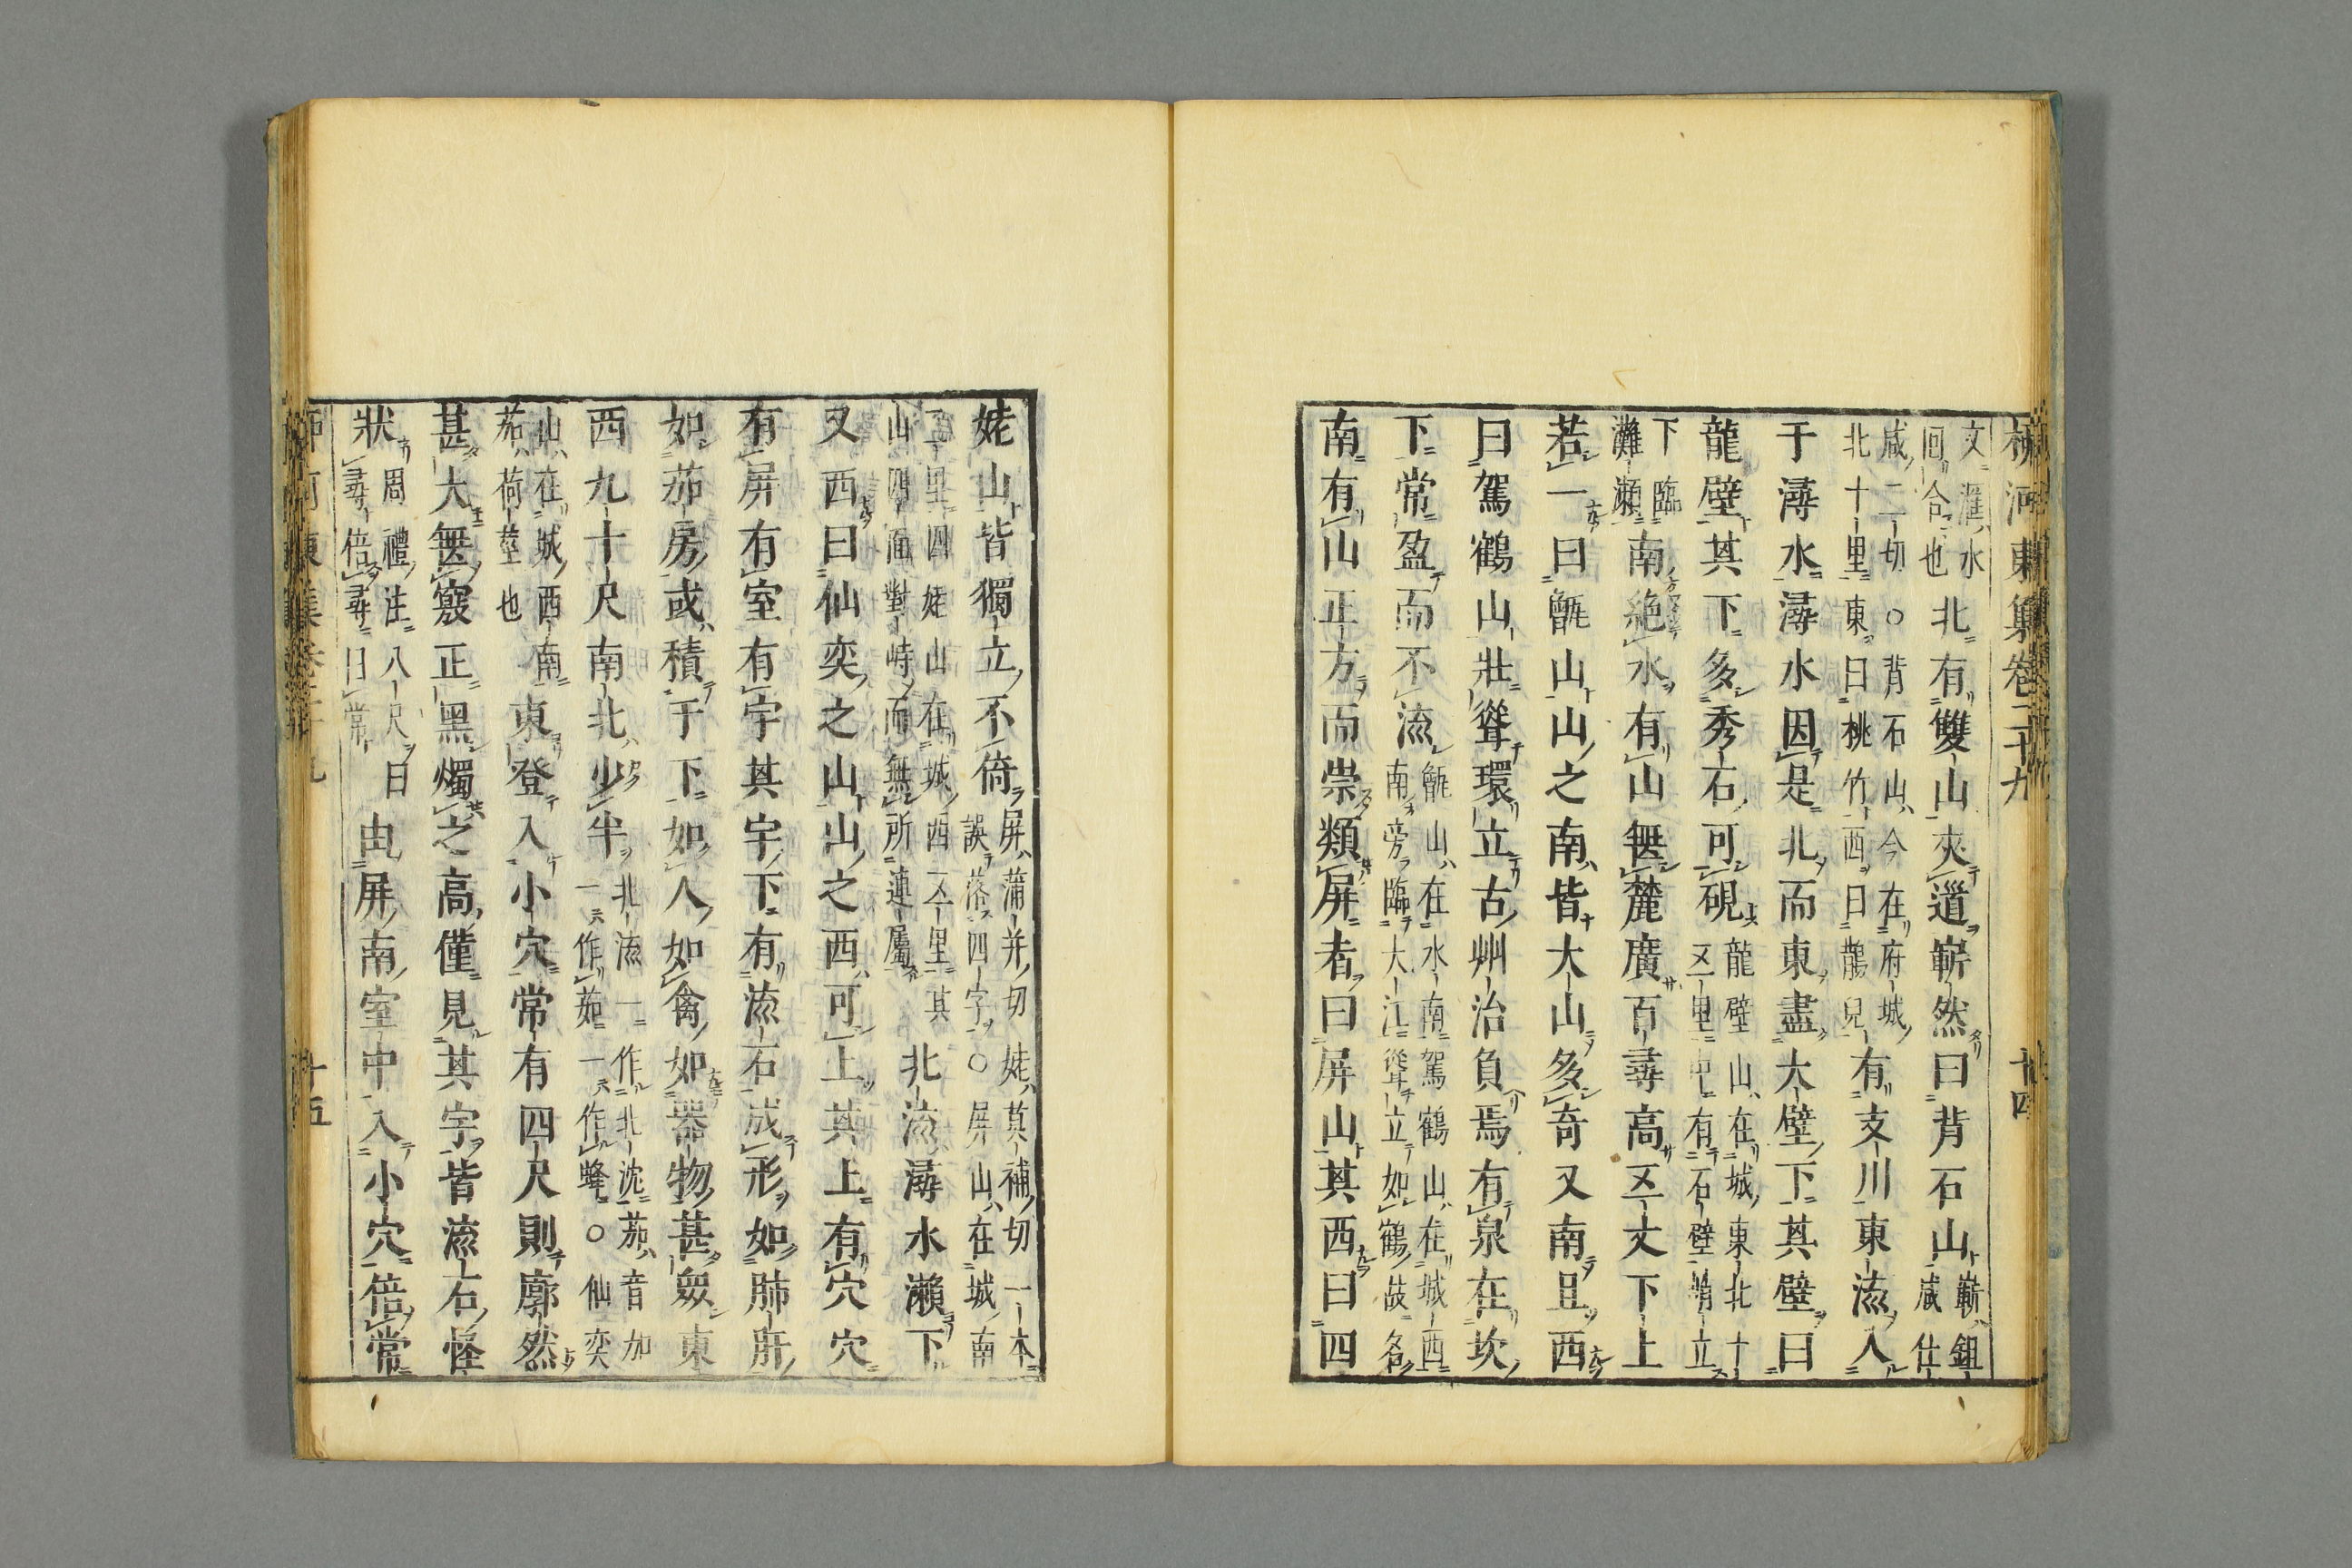 柳河東集卷二十九 十四
文滙水
囘合也北有雙山夾道嶄然曰背石山嶄鉏
咸仕
咸二切○背石山今在府城
北十里東曰桃竹西曰鵲兒有支川東流入
于潯水潯水因是北而東盡大壁下其壁曰
龍壁其下多秀石可硯龍壁山在城東北十
五里中有石壁峭立
下臨
灘瀬南絶水有山無麓廣百尋高五丈下上
若一曰甑山山之南皆大山多奇又南且西
曰駕鶴山壯聳環立古州治負焉有泉在坎
下常盈而不流甑山在水南駕鶴山在城西
南旁臨大江聳立如鶴故名
南有山正方而崇類屏者曰屏山其西曰四
姥山皆獨立不倚屏蒲并切姥莫補切一本
誤落四字○屏山在城南
里四姥山在城西五里其
山四面對峙而無所連屬北流潯水瀬下
又西曰仙奕之山山之西可上其上有穴穴
有屏有室有宇其宇下有流石成形如肺肝
如茄房或積于下如人如禽如器物甚衆東
西九十尺南北少半北流一作北沈茄音加
一作作茄一作蜂○仙奕
山在城西南
茄荷莖也東登入小穴常有四尺則廓然
甚大無竅正黑燭之高僅見其宇皆流石怪
狀周禮注八尺曰
尋倍尋曰常由屏南室中入小穴倍常
柳河東集卷二十九 十五